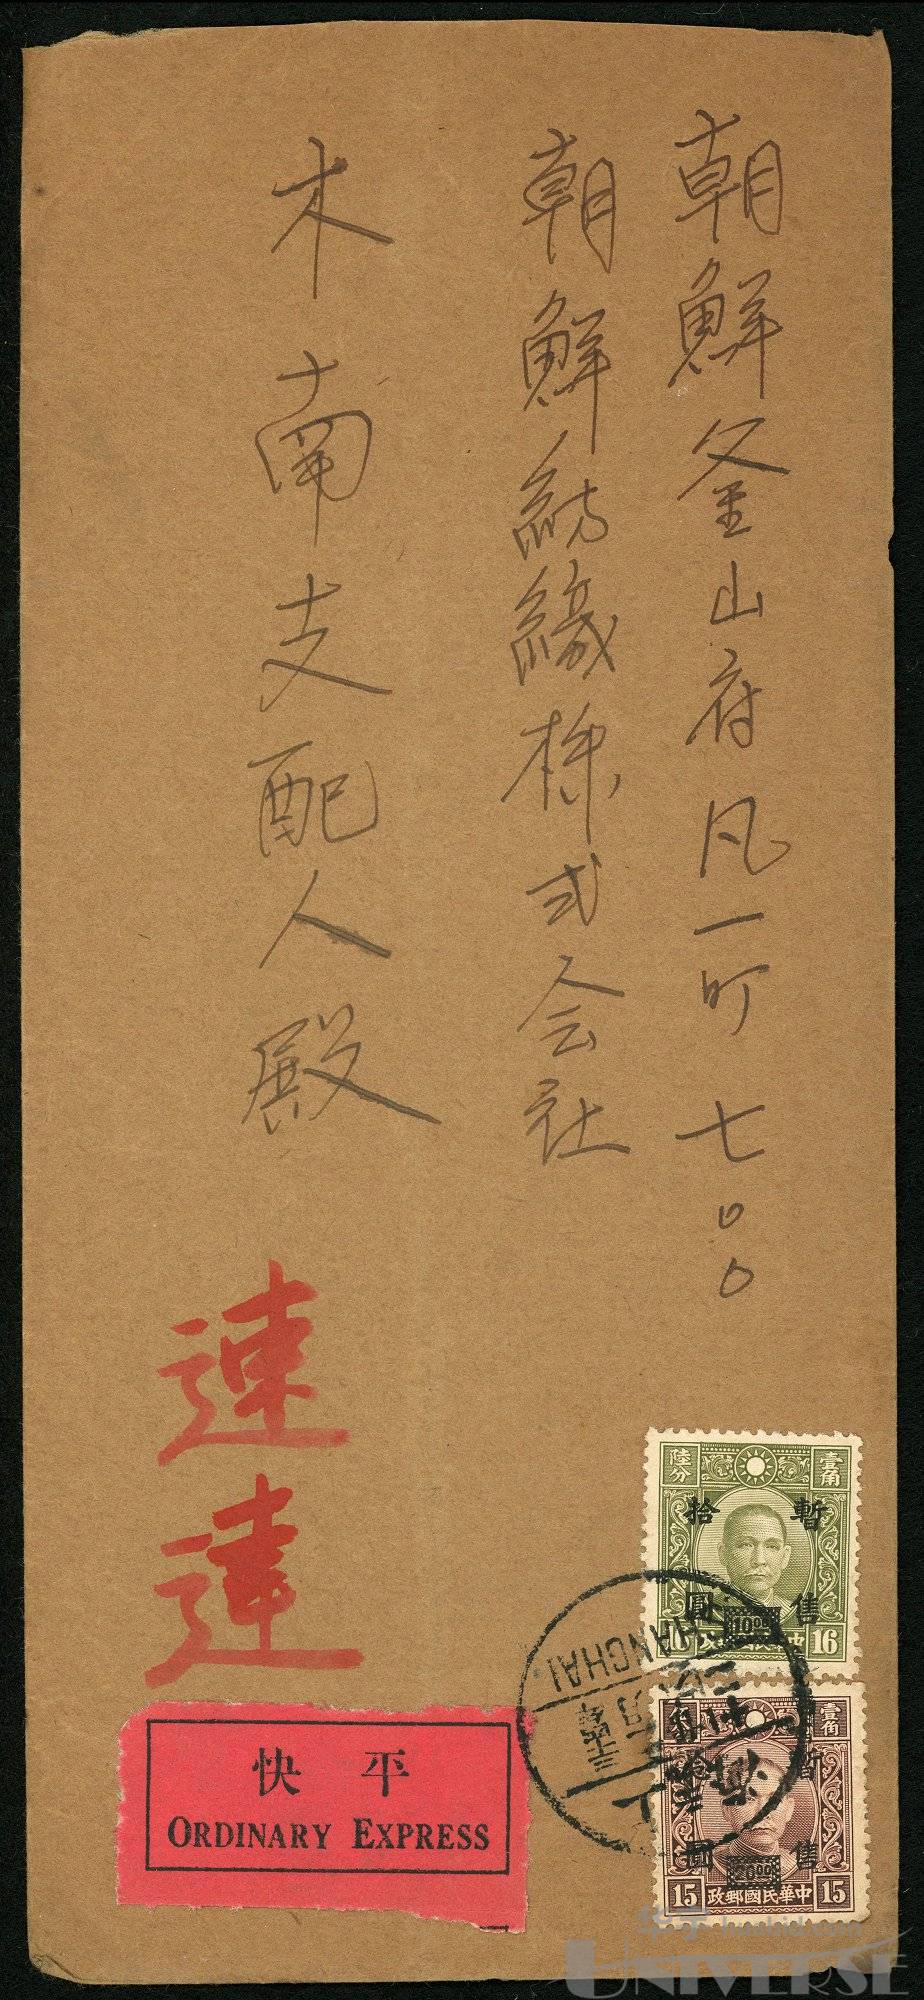 朝鮮釜山府凡一町七〇〇
朝鮮紡織株式会社
木南支配人殿
速達
快平
ORDINARY EXPRESS
陸分 壹角
暫售
拾圓
10⁰⁰
16 16
上海
SHANGHAI
壹角
暫售
拾圓
20⁰⁰
15 政郵國民華中 15
UNIVERSE